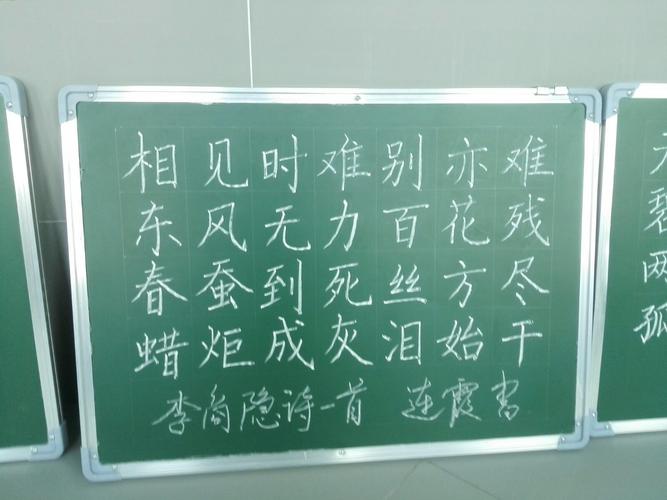 相见时难别亦难
东风无力百花残
春蚕到死丝方尽
蜡炬成灰泪始干
李商隐诗一首 连霞书
碧
两
孤